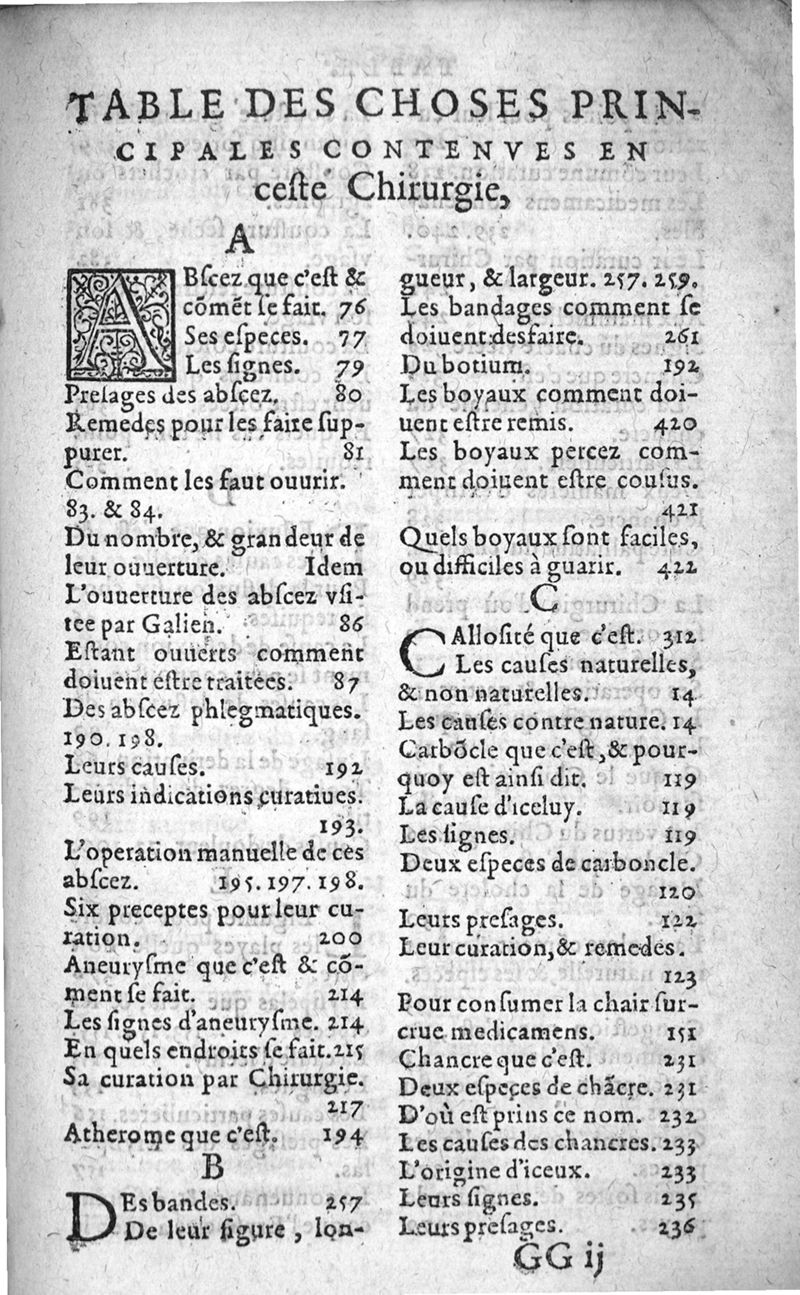 TABLE DES CHOSES PRIN-
CIPALES CONTENVES EN
ceſte Chirurgie,
A
ABſcez que c'eſt &
cõmẽt ſe fait. 76
Ses eſpeces. 77
Les ſignes. 79
Preſages des abſcez. 80
Remedes pour les faire ſup-
purer. 81
Comment les faut ouurir.
83. & 84.
Du nombre, & grandeur de
leur ouuerture. Idem
L'ouuerture des abſcez vſi-
tee par Galien. 86
Eſtant ouuerts comment
doiuent eſtre traitees. 87
Des abſcez phlegmatiques.
190. 198.
Leurs cauſes. 192
Leurs indications curatiues.
193.
L'operation manuelle de ces
abſcez. 195. 197. 198.
Six preceptes pour leur cu-
ration. 200
Aneuryſme que c'eſt & cõ-
ment ſe fait. 214
Les ſignes d'aneuryſme. 214
En quels endroits ſe fait. 215
Sa curation par Chirurgie.
217
Atherome que c'eſt. 194
B
DEs bandes. 257
De leur figure, lon-
gueur, & largeur. 257. 259.
Les bandages comment ſe
doiuent desfaire. 261
Du botium. 192
Les boyaux comment doi-
uent eſtre remis. 420
Les boyaux percez com-
ment doiuent eſtre couſus.
421
Quels boyaux ſont faciles,
ou difficiles à guarir. 422
C
CAlloſité que c'eſt. 312
Les cauſes naturelles,
& non naturelles. 14
Les cauſes contre nature. 14
Carbõcle que c'eſt, & pour-
quoy eſt ainſi dit. 119
La cauſe d'iceluy. 119
Les ſignes. 119
Deux eſpeces de carboncle.
120
Leurs preſages. 122
Leur curation, & remedes.
123
Pour conſumer la chair ſur-
crue medicamens. 151
Chancre que c'eſt. 231
Deux eſpeces de chãcre. 231
D'où eſt prins ce nom. 232
Les cauſes des chancres. 233
L'origine d'iceux. 233
Leurs ſignes. 235
Leurs preſages. 236
GG ij